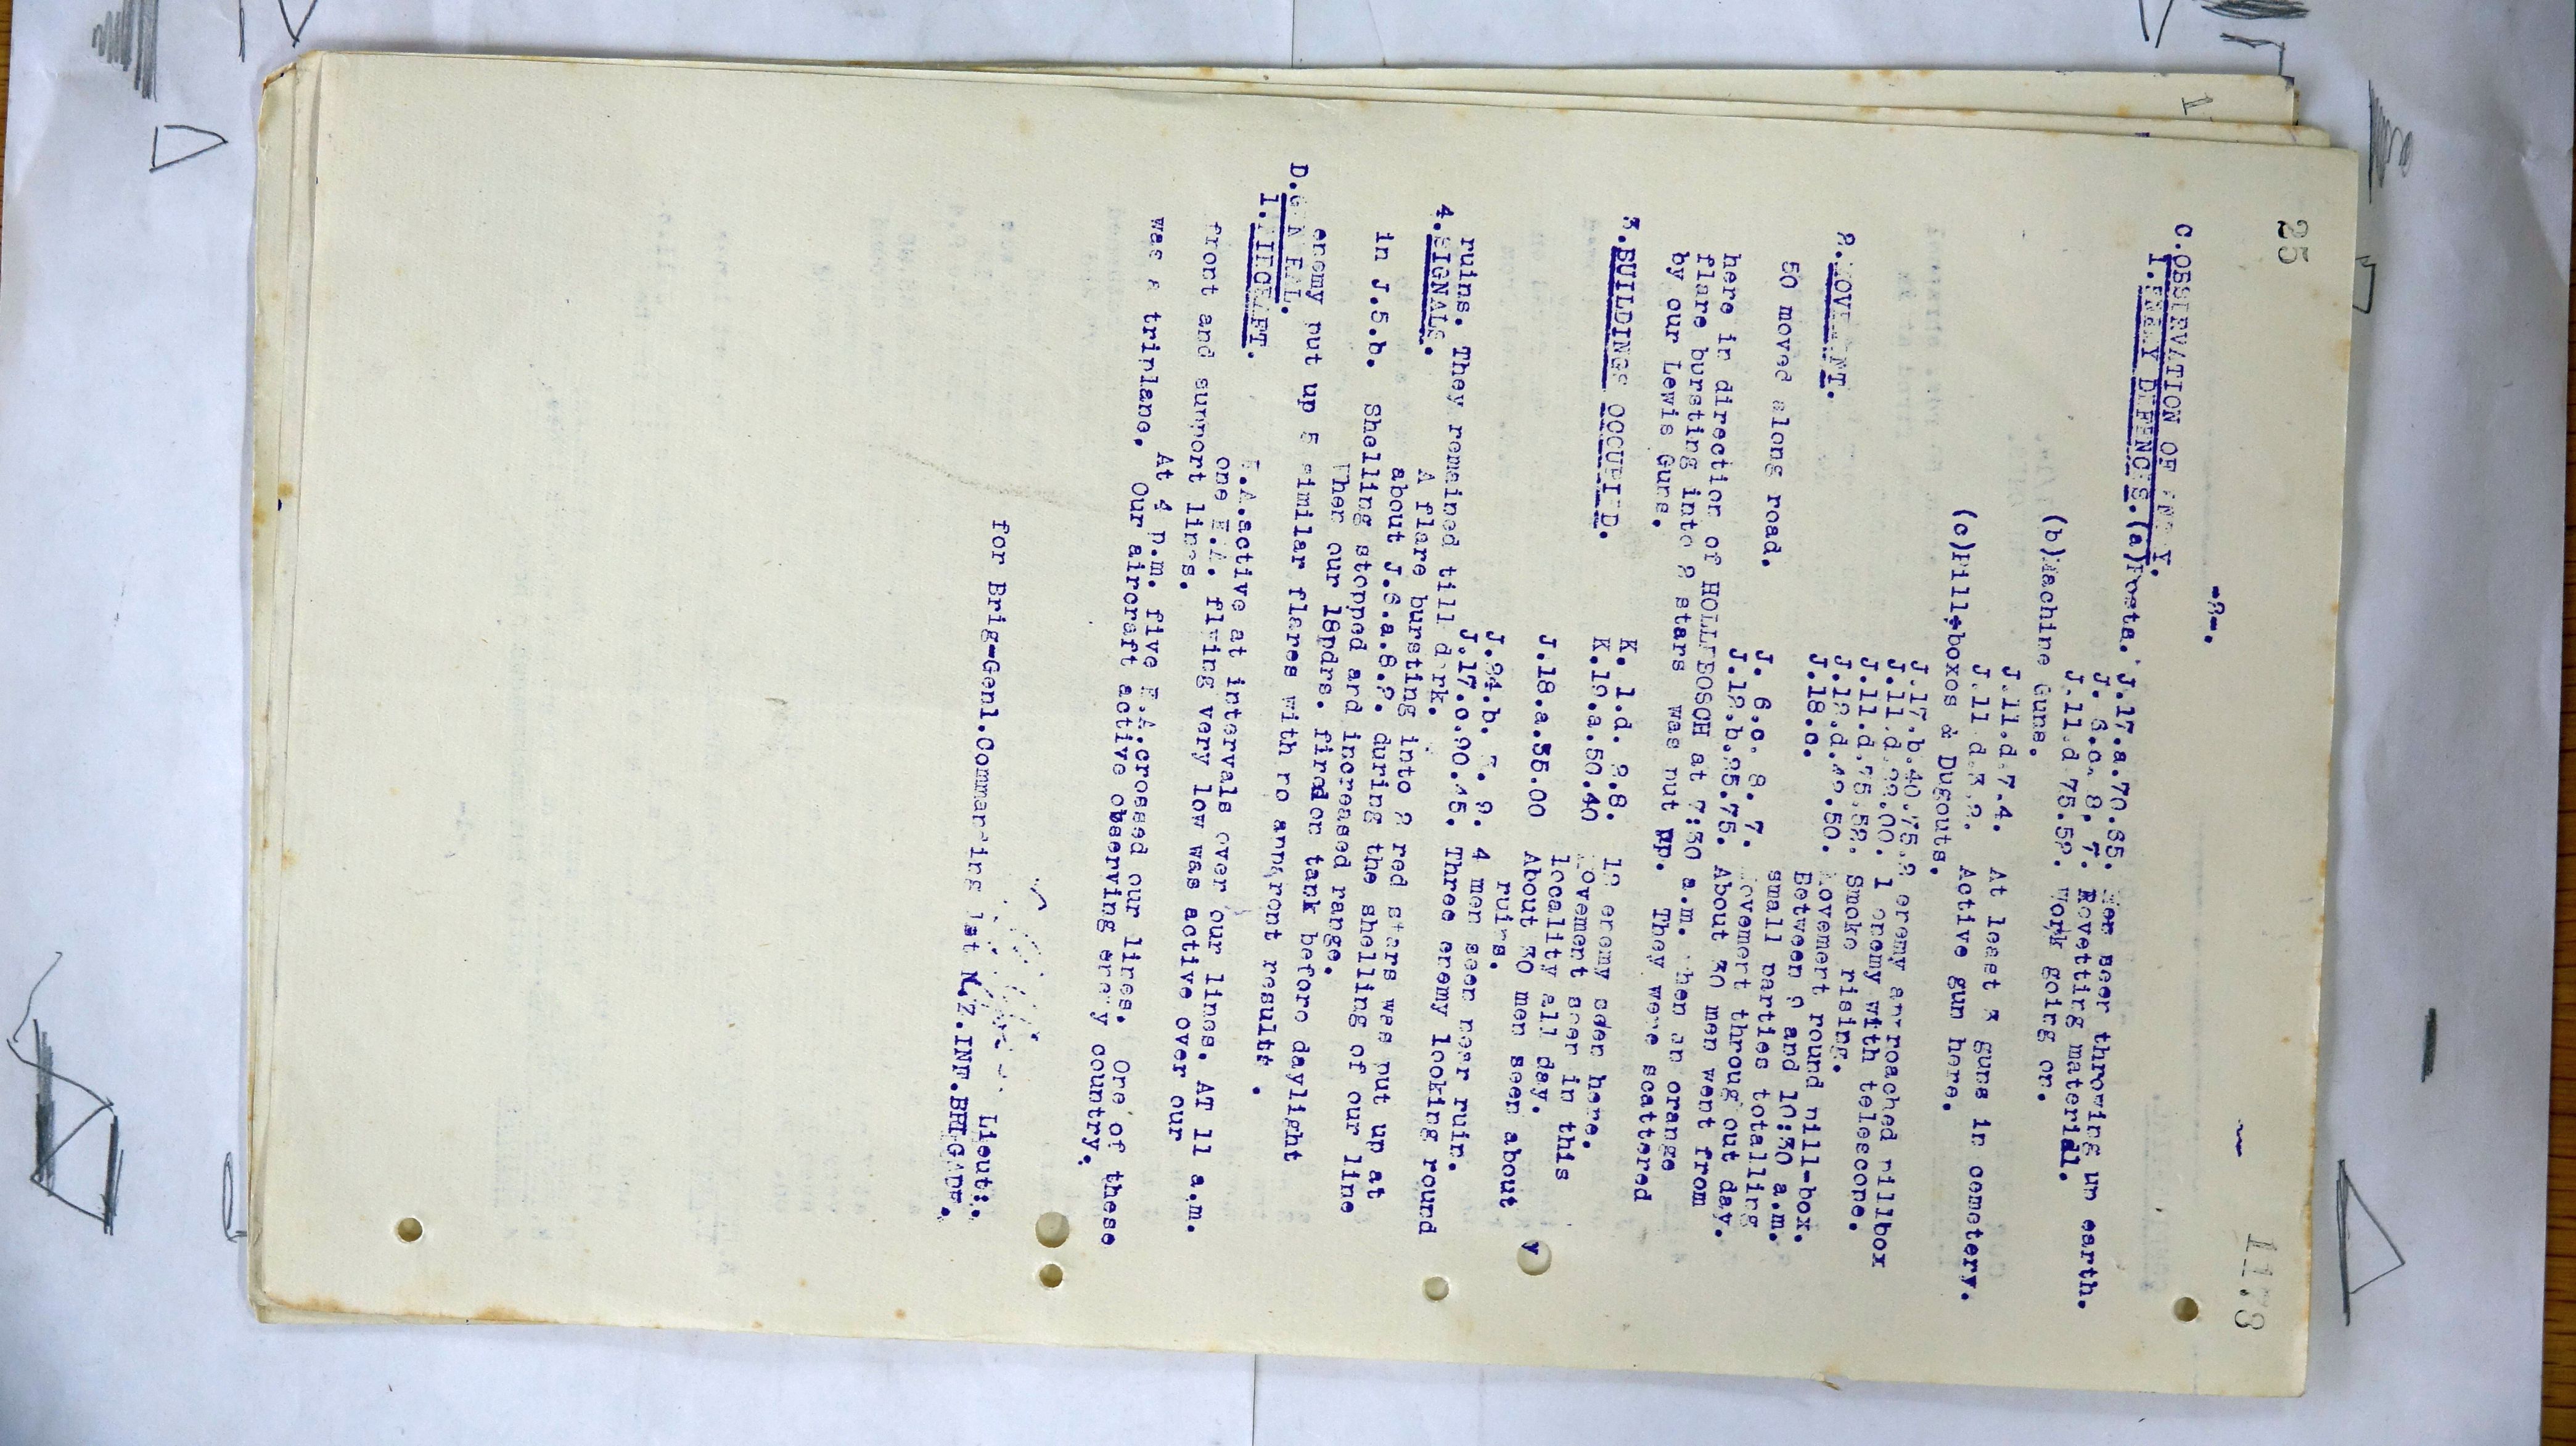 25
1173
-2-.
C.OBSERVATION OF ENEMY.
1.ENEMY DEFENCES.(a)Posts. J.17.a.70.65. Men seen throwing up earth.
J. 6.c. 8. 7. Revetting material.
J.11.d 75.52. Work going on.
(b)Machine Guns.
J.11.d.7.4. At least 3 guns in cemetery.
J.11.d.3.2. Active gun here.
(c)Pill-boxes & Dugouts.
J.17.b.40.75.2 enemy approached pillbox
J.11.d. 1 enemy with telescope.
J.11.d.75.52. Smoke rising.
J.12.d. Movement round pill-box.
J.18.c. Between 9 and 10:30 a.m.
small parties totalling
50 moved along road.
2.MOVEMENT.
J. 6.c. 8. 7. Movement throug out day.
J.12.b.25.75. About 30 men went from
here in direction of HOLLEBOSCH at 7:30 a.m. when an orange
flare bursting into 2 stars was put up. They were scattered
by our Lewis Guns.
3.BUILDINGS OCCUPIED.
K. 1.d. 2.8. 12 enemy seen here.
K.19.a.50.40 Movement seen in this
locality all day.
J.18.a.35.00 About 30 men seen about
ruins.
J.24.b. 4 men seen near ruin.
J.17.c.90.45. Three enemy looking round
ruins. They remained till dark.
4.SIGNALS.
A flare bursting into 2 red stars was put up at
about J.6.a.8.2. during the shelling of our line
in J.5.b. Shelling stopped and increased range.
When our 18pdrs. fired on tank before daylight
enemy put up 5 similar flares with no apparent results .
D.GENERAL.
1.AIRCRAFT.
E.A.active at intervals over our lines. AT 11 a.m.
one E.A. flying very low was active over our
front and support lines.
At 4 p.m. five E.A.crossed our lines. One of these
was a triplane. Our aircraft active observing enemy country.
Lieut:.
for Brig-Genl.Commanding 1st N.Z.INF.BRIGADE.